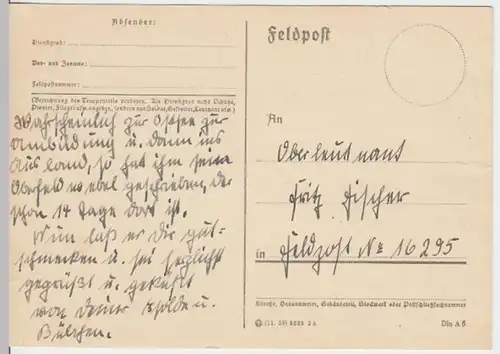 Absender:
Dienstgrad:
Vor- und Zuname:
Feldpostnummer:
(Bezeichnung des Truppenteils verboten. Als Dienstgrad nicht Schütze,
Pionier, Flieger usw. angeben, sondern nur Soldat, Gefreiter, Leutnant usw.)
Wahrscheinlich zur Ostsee zur
Ausbildung u. dann ins
Ausland, so hat ihm sein
Oberfeldwebel geschrieben, der
schon 14 Tage dort ist.
Nun laß es Dir gut
schmecken u. sei herzlichst
gegrüßt u. geküßt
von Deiner u.
Bübchen.
Feldpost
An
Oberleutnant
Fritz Fischer
in Feldpost No 16295
Straße, Hausnummer, Gebäudeteil, Stockwerk oder Postschließfachnummer
Din A 6